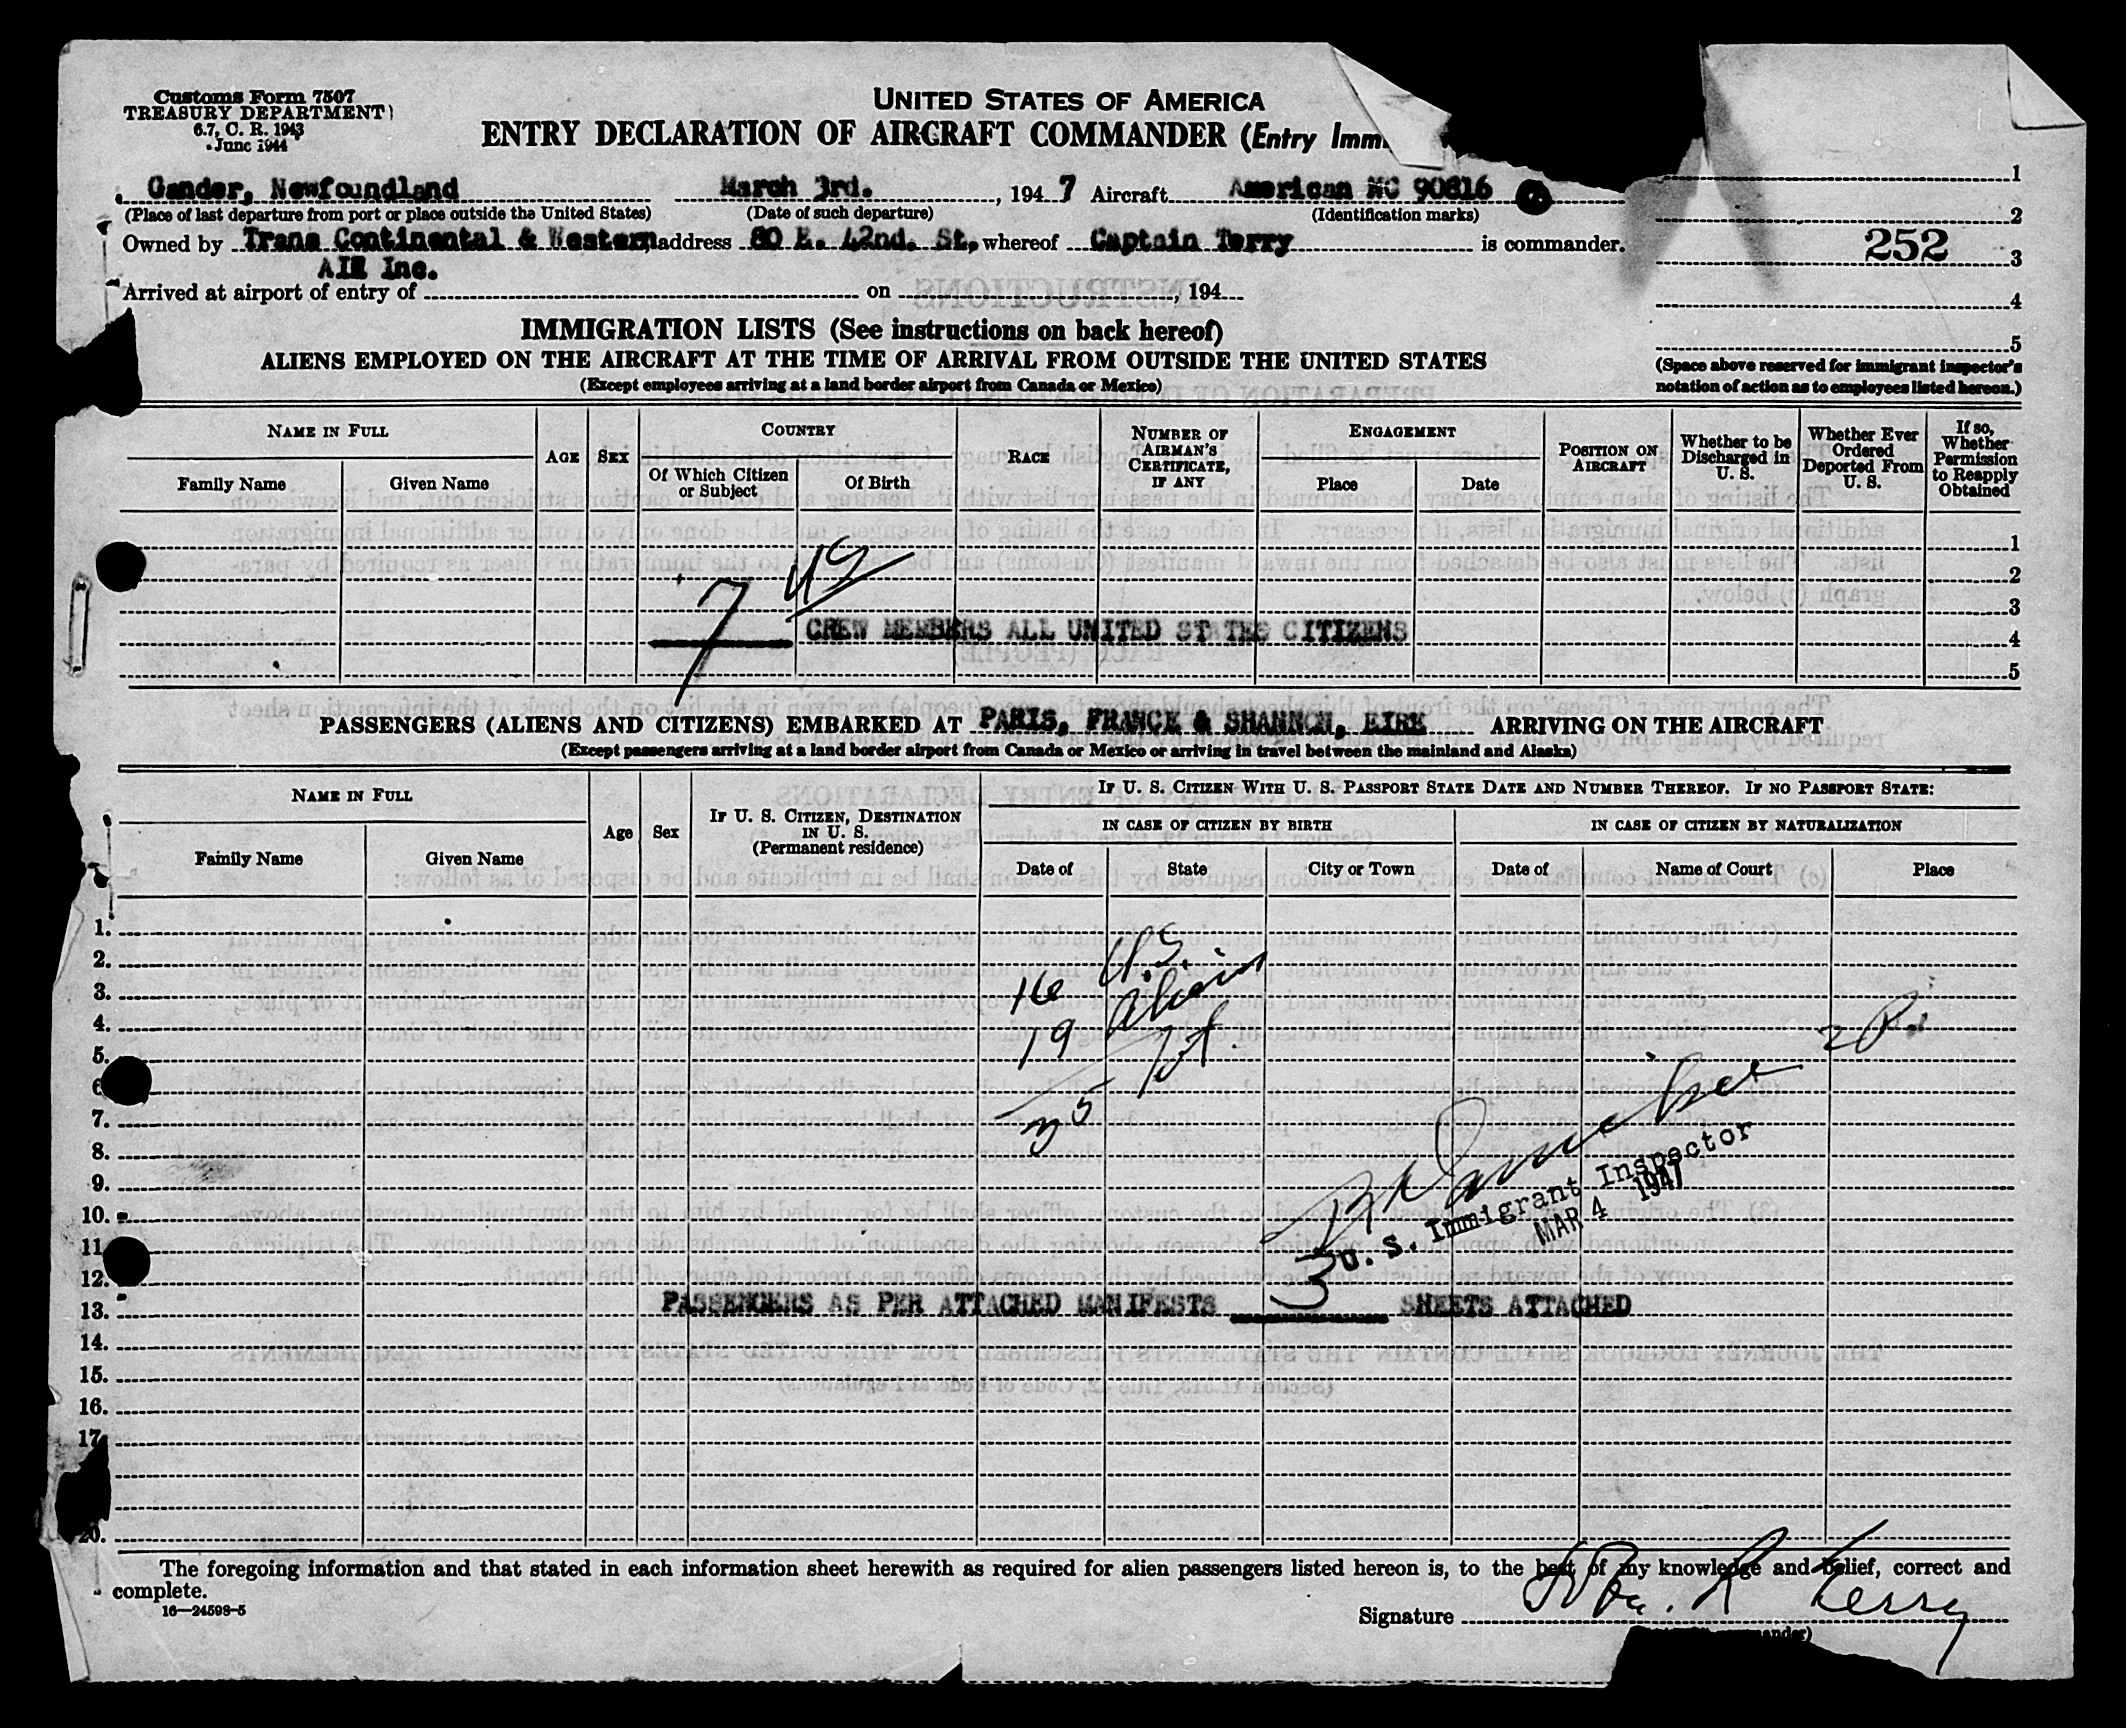 Customs Form 7507
TREASURY DEPARTMENT
6.7, C. R. 1943
June 1944
UNITED STATES OF AMERICA
ENTRY DECLARATION OF AIRCRAFT COMMANDER (Entry Imm
Gander, Newfoundland March 3rd. , 194 7 Aircraft American NC 90816
(Place of last departure from port or place outside the United States) (Date of such departure) (Identification marks)
Owned by Trans Continental & Western, address 80 E. 42nd. St, whereof Captain Terry is commander.
AIR Inc.
Arrived at airport of entry of on , 194
1
2
252
3
4
5
(Space above reserved for immigrant inspector's
notation of action as to employees listed hereon.)
IMMIGRATION LISTS (See instructions on back hereof)
ALIENS EMPLOYED ON THE AIRCRAFT AT THE TIME OF ARRIVAL FROM OUTSIDE THE UNITED STATES
(Except employees arriving at a land border airport from Canada or Mexico)
NAME IN FULL
Family Name
Given Name
AGE
SEX
COUNTRY
Of Which Citizen
or Subject
Of Birth
RACE
NUMBER OF
AIRMAN'S
CERTIFICATE,
IF ANY
ENGAGEMENT
Place
Date
POSITION ON
AIRCRAFT
Whether to be
Discharged in
U. S.
Whether Ever
Ordered
Deported From
U. S.
If so,
Whether
Permission
to Reapply
Obtained
1
2
3
4
5
7 US
CREW MEMBERS ALL UNITED STATES CITIZENS
PASSENGERS (ALIENS AND CITIZENS) EMBARKED AT PARIS, FRANCE & SHANNON, EIRE ARRIVING ON THE AIRCRAFT
(Except passengers arriving at a land border airport from Canada or Mexico or arriving in travel between the mainland and Alaska)
NAME IN FULL
Family Name
Given Name
Age
Sex
IF U. S. CITIZEN, DESTINATION
IN U. S.
(Permanent residence)
IF U. S. CITIZEN WITH U. S. PASSPORT STATE DATE AND NUMBER THEREOF. IF NO PASSPORT STATE:
IN CASE OF CITIZEN BY BIRTH
IN CASE OF CITIZEN BY NATURALIZATION
Date of
State
City or Town
Date of
Name of Court
Place
1.
2.
3.
4.
5.
6
7.
8.
9.
10.
11
12.
13.
14.
15.
16.
17
20.
16 U.S.
19 Aliens
35 Tot.
2 P.
U. S. Immigrant Inspector
MAR 4 1947
PASSENGERS AS PER ATTACHED MANIFESTS 3 SHEETS ATTACHED
The foregoing information and that stated in each information sheet herewith as required for alien passengers listed hereon is, to the best of my knowledge and belief, correct and
complete.
16—24598-5
Signature R Terry